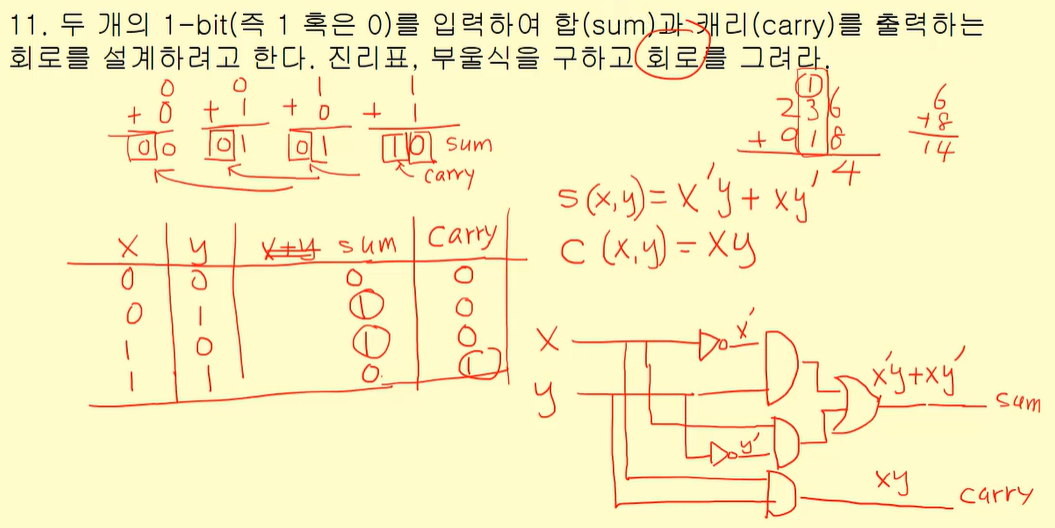 11. 두 개의 1-bit(즉 1 혹은 0)를 입력하여 합(sum)과 캐리(carry)를 출력하는
회로를 설계하려고 한다. 진리표, 부울식을 구하고 회로를 그려라.
0 0 1 1
+ 0 + 1 + 0 + 1
00 01 01 10 sum
carry
1
236
+ 918
4
6
+8
14
S(x,y)= x'y + xy'
C (x,y) = xy
x y x+y sum carry
0 0 0 0
0 1 1 0
1 0 1 0
1 1 0 1
x x' x'y+xy'
sum
y y'
xy carry